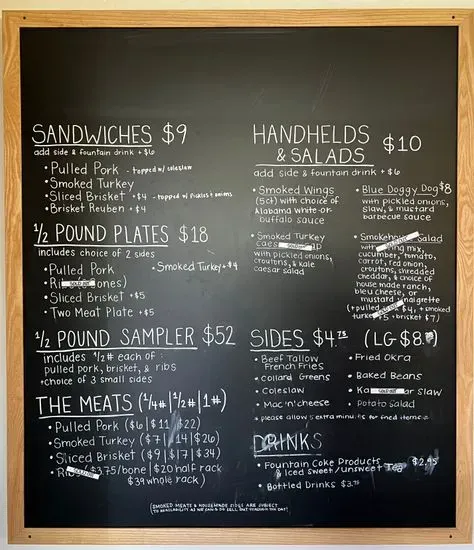 SANDWICHES $9
add side & fountain drink + $6
• Pulled Pork - topped w/ coleslaw
• Smoked Turkey
• Sliced Brisket + $4 - topped w/ pickles & onions
• Brisket Reuben + $4
1/2 POUND PLATES $18
includes choice of 2 sides
• Pulled Pork
• Smoked Turkey + $4
• Ri ones)
• Sliced Brisket + $5
• Two Meat Plate + $5
1/2 POUND SAMPLER $52
includes 1/2# each of:
pulled pork, brisket, & ribs
+ choice of 3 small sides
THE MEATS (1/4# | 1/2# | 1#)
• Pulled Pork ($6 | $11 | $22)
• Smoked Turkey ($7 | $14 | $26)
• Sliced Brisket ($9 | $17 | $34)
$3.75/bone | $20 half rack
$39 whole rack)
HANDHELDS
& SALADS $10
add side & fountain drink + $6
• Smoked Wings
(5ct) with choice of
Alabama white or
buffalo sauce
• Smoked Turkey
Caes
with pickled onions,
croutons, & kale
caesar salad
• Blue Doggy Dog $8
with pickled onions,
slaw, & mustard
barbecue sauce
• Smokehouse Salad
with ing mix,
cucumber, tomato,
carrot, red onion,
croutons, shredded
cheddar, & choice of
house made ranch,
bleu cheese, or
mustard vinaigrette
(+pulled $4, + smoked
turkey $5 + brisket $7)
SIDES $4.75 (LG $8.
• Beef Tallow
French Fries
• Collard Greens
• Coleslaw
• Mac'n'cheese
• Fried Okra
• Baked Beans
• Ka ar Slaw
• Potato Salad
• please allow 5 extra minutes for fried items •
DRINKS
• Fountain Coke Products
& Iced sweet/unsweet Tea $2.95
• Bottled Drinks $3.75
(SMOKED MEATS & HOUSEMADE SIDES ARE SUBJECT
TO AVAILABILITY AS WE CAN & DO SELL OUT THROUGH THE DAY)